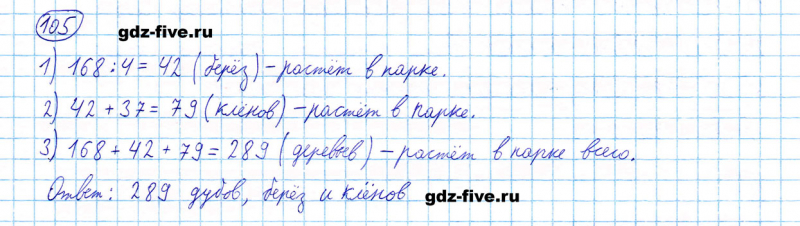 105 gdz-five.ru
1) 168 : 4 = 42 (берёз) – растёт в парке.
2) 42 + 37 = 79 (клёнов) – растёт в парке.
3) 168 + 42 + 79 = 289 (деревьев) – растёт в парке всего.
Ответ: 289 дубов, берёз и клёнов gdz-five.ru